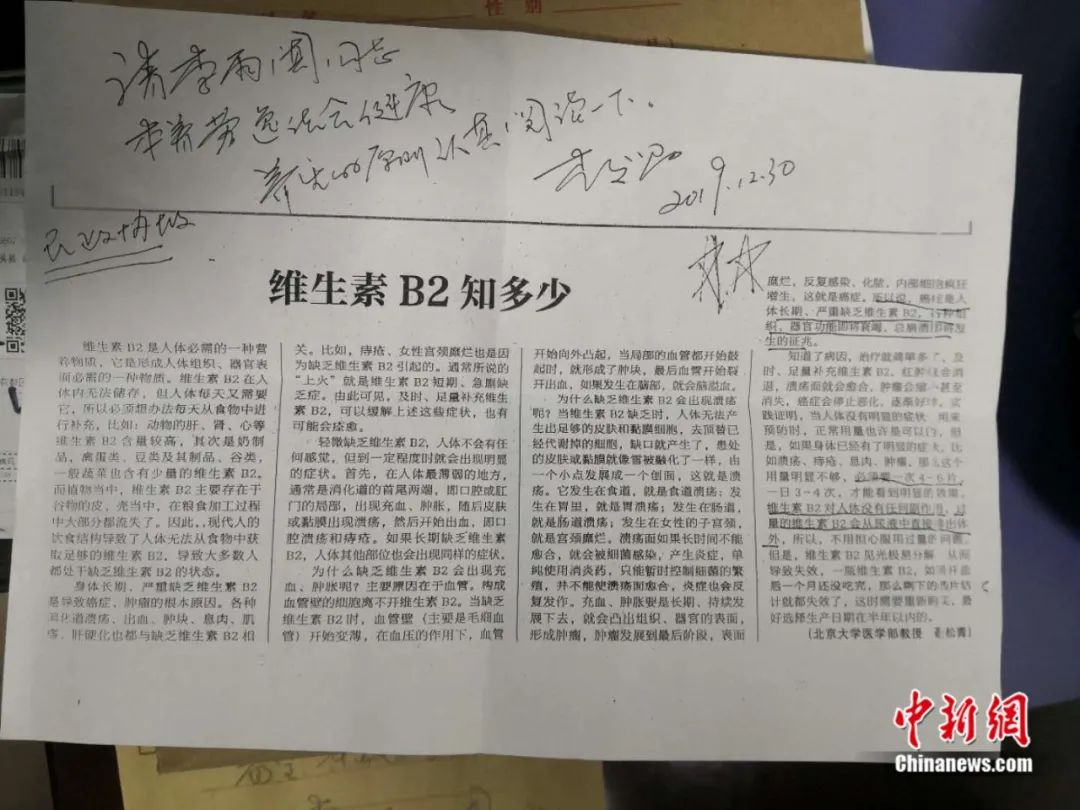 性 别
请李雨阗同志
本着劳逸结合健康
养生的原则认真阅读一下。
2019.12.30
民政协报
维生素 B2 知多少
维生素 B2 是人体必需的一种营
养物质，它是形成人体组织、器官表
面必需的一种物质。维生素 B2 在人
体内无法储存，但人体每天又需要
它，所以必须想办法每天从食物中进
行补充，比如：动物的肝、肾、心等
维生素 B2 含量较高，其次是奶制
品，禽蛋类、豆类及其制品、谷类，
一般蔬菜也含有少量的维生素 B2。
而植物当中，维生素 B2 主要存在于
谷物的皮、壳当中，在粮食加工过程
中大部分都流失了。因此，现代人的
饮食结构导致了人体无法从食物中获
取足够的维生素 B2，导致大多数人
都处于缺乏维生素 B2 的状态。
身体长期、严重缺乏维生素 B2
是导致癌症、肿瘤的根本原因。各种
消化道溃疡、出血、肿块、息肉、肌
瘤、肝硬化也都与缺乏维生素 B2 相
关。比如，痔疮、女性宫颈糜烂也是因
为缺乏维生素 B2 引起的。通常所说的
“上火”就是维生素 B2 短期、急剧缺
乏症。由此可见，及时、足量补充维生
素 B2，可以缓解上述这些症状，也有
可能会痊愈。
轻微缺乏维生素 B2，人体不会有任
何感觉，但到一定程度时就会出现明显
的症状。首先，在人体最薄弱的地方，
通常是消化道的首尾两端，即口腔或肛
门的局部，出现充血、肿胀，随后皮肤
或黏膜出现溃疡，然后开始出血，即口
腔溃疡和痔疮。如果长期缺乏维生素
B2，人体其他部位也会出现同样的症状。
为什么缺乏维生素 B2 会出现充
血、肿胀呢？主要原因在于血管。构成
血管壁的细胞离不开维生素 B2。当缺
乏维生素 B2 时，血管壁（主要是毛细血
管）开始变薄，在血压的作用下，血管
开始向外凸起，当局部的血管都开始鼓
起时，就形成了肿块，最后血管开始裂
开出血，如果发生在脑部，就会脑溢血。
为什么缺乏维生素 B2 会出现溃疡
呢？当维生素 B2 缺乏时，人体无法产
生出足够的皮肤和黏膜细胞，去顶替已
经代谢掉的细胞，缺口就产生了，患处
的皮肤或黏膜就像雪被融化了一样，由
一个小点发展成一个创面，这就是溃
疡。它发生在食道，就是食道溃疡；发
生在胃里，就是胃溃疡；发生在肠道，
就是肠道溃疡；发生在女性的子宫颈，
就是宫颈糜烂。溃疡面如果长时间不能
愈合，就会被细菌感染，产生炎症，单
纯使用消炎药，只能暂时控制细菌的繁
殖，并不能使溃疡面愈合，炎症也会反
复发作。充血、肿胀要是长期、持续发
展下去，就会凸出组织、器官的表面，
形成肿瘤，肿瘤发展到最后阶段，表面
糜烂，反复感染、化脓，内部细胞疯狂
增生，这就是癌症。所以说，癌症是人
体长期、严重缺乏维生素 B2，各种组
织、器官功能即将衰竭，总崩溃即将发
生的征兆。
知道了病因，治疗就简单多了，及
时、足量补充维生素 B2，红肿就会消
退，溃疡面就会愈合，肿瘤会缩小甚至
消失，癌症会停止恶化，逐渐好转。实
践证明，当人体没有明显的症状 用来
预防时，正常用量也许是可以的，但
是，如果身体已经有了明显的症状，比
如溃疡、痔疮、息肉、肿瘤，那么这个
用量明显不够，必须要一次 4-6 片，
一日 3-4 次，才能看到明显的效果。
维生素 B2 对人体没有任何副作用，过
量的维生素 B2 会从尿液中直接排出体
外，所以，不用担心服用过量的问题。
但是，维生素 B2 见光极易分解 从而
导致失效，一瓶维生素 B2，如果开盖
后一个月还没吃完，那么剩下的药片估
计就都失效了，这时需要重新购买，最
好选择生产日期在半年以内的。
（北京大学医学部教授 松青）
中新网
Chinanews.com